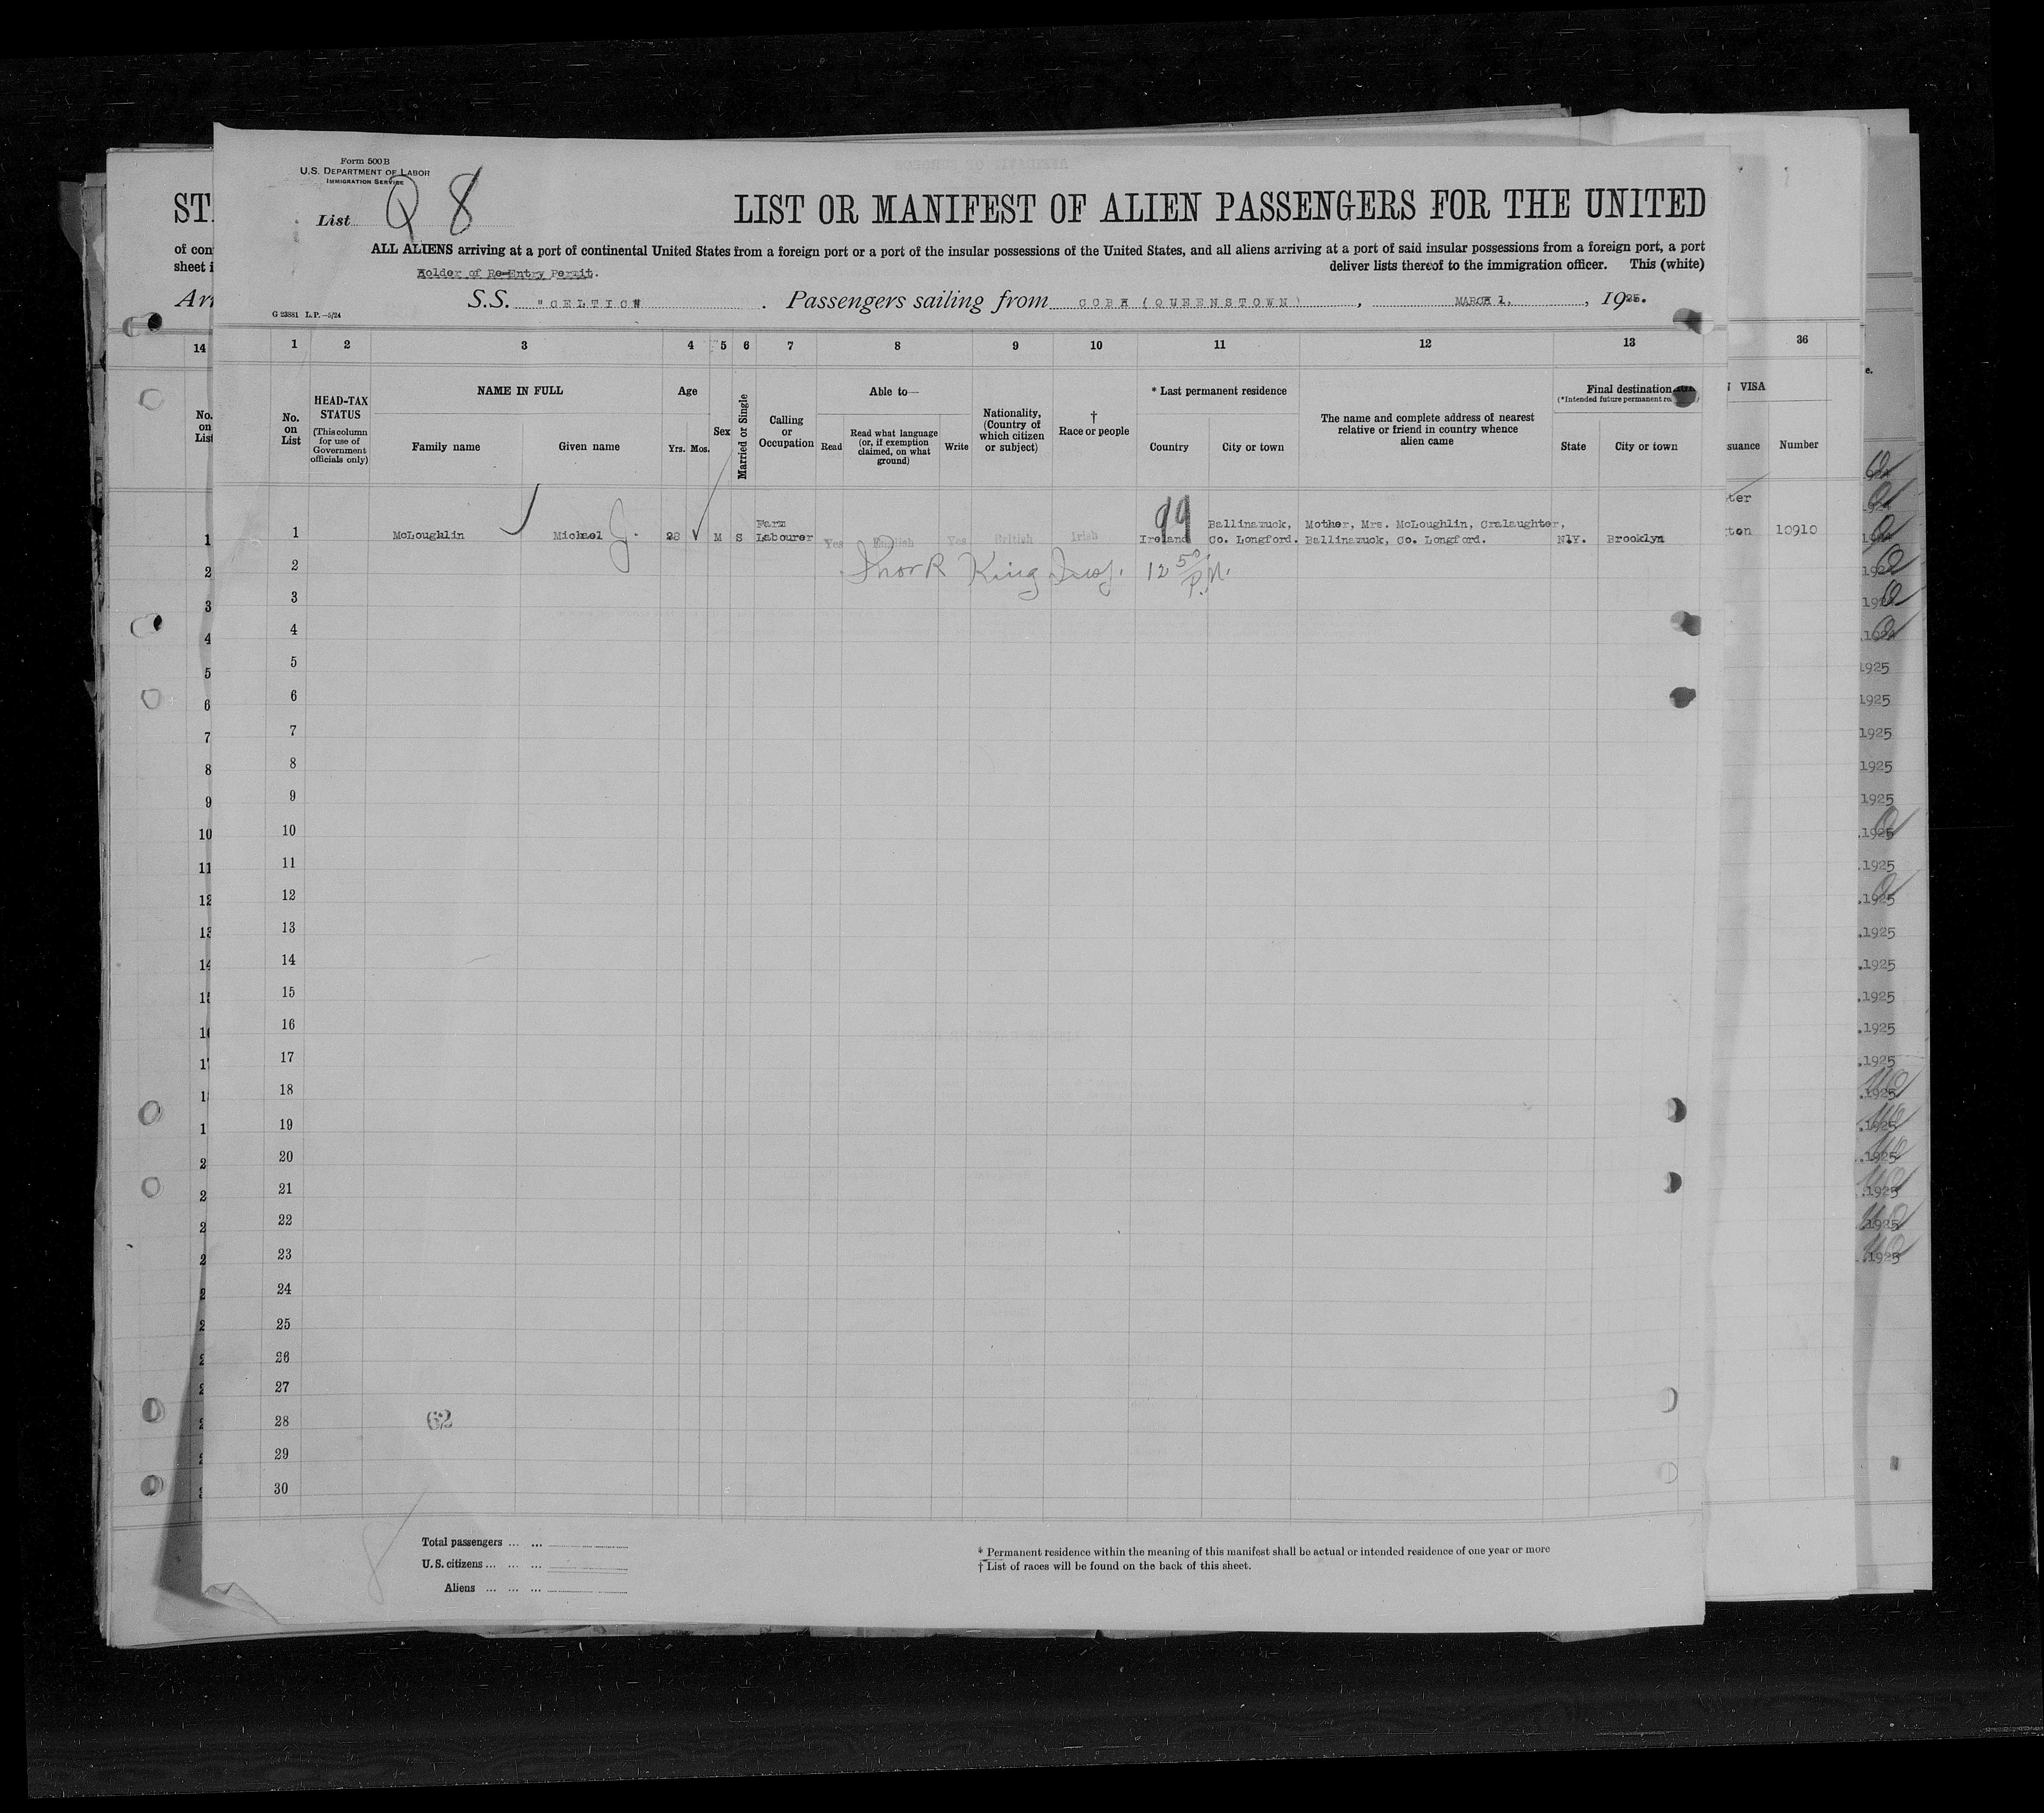 Form 500B
U.S. DEPARTMENT OF LABOR
IMMIGRATION SERVICE
List Q 8
LIST OR MANIFEST OF ALIEN PASSENGERS FOR THE UNITED
ALL ALIENS arriving at a port of continental United States from a foreign port or a port of the insular possessions of the United States, and all aliens arriving at a port of said insular possessions from a foreign port, a port
deliver lists thereof to the immigration officer. This (white)
Holder of Re-Entry Permit.
S.S. "CELTIC" . Passengers sailing from COBH (QUEENSTOWN) , MARCH 1, , 1925.
G 23881 L.P.—5/24
STA
of con
sheet i
Arr
14 1 2 3 4 5 6 7 8 9 10 11 12 13 36
No. on List
No. on List
HEAD-TAX STATUS
(This column for use of Government officials only)
NAME IN FULL
Family name Given name
Age
Yrs. Mos.
Sex
Married or Single
Calling or Occupation
Able to—
Read
Read what language (or, if exemption claimed, on what ground)
Write
Nationality, (Country of which citizen or subject)
† Race or people
* Last permanent residence
Country City or town
The name and complete address of nearest relative or friend in country whence alien came
Final destination
(*Intended future permanent re
State City or town
VISA
suance Number
1 McLoughlin Michael J. 28 M S Farm Labourer Yes English Yes British Irish 99 Ireland Ballinamuck, Co. Longford. Mother, Mrs. McLoughlin, Cralaughter, Ballinamuck, Co. Longford. N.Y. Brooklyn
ter
ton 10910
2 King Insp. 12 50 P.M.
3
4
5
6
7
8
9
10
11
12
13
14
15
16
17
18
19
20
21
22
23
24
25
26
27
28 62
29
30
1925
1925
1925
1925
1925
.1925
.1925
.1925
.1925
.1925
.1925
.1925
.1925
.1925
.1925
.1925
.1925
.1925
.1925
8
Total passengers ... ...
U.S. citizens ... ... ...
Aliens ... ... ...
* Permanent residence within the meaning of this manifest shall be actual or intended residence of one year or more
† List of races will be found on the back of this sheet.